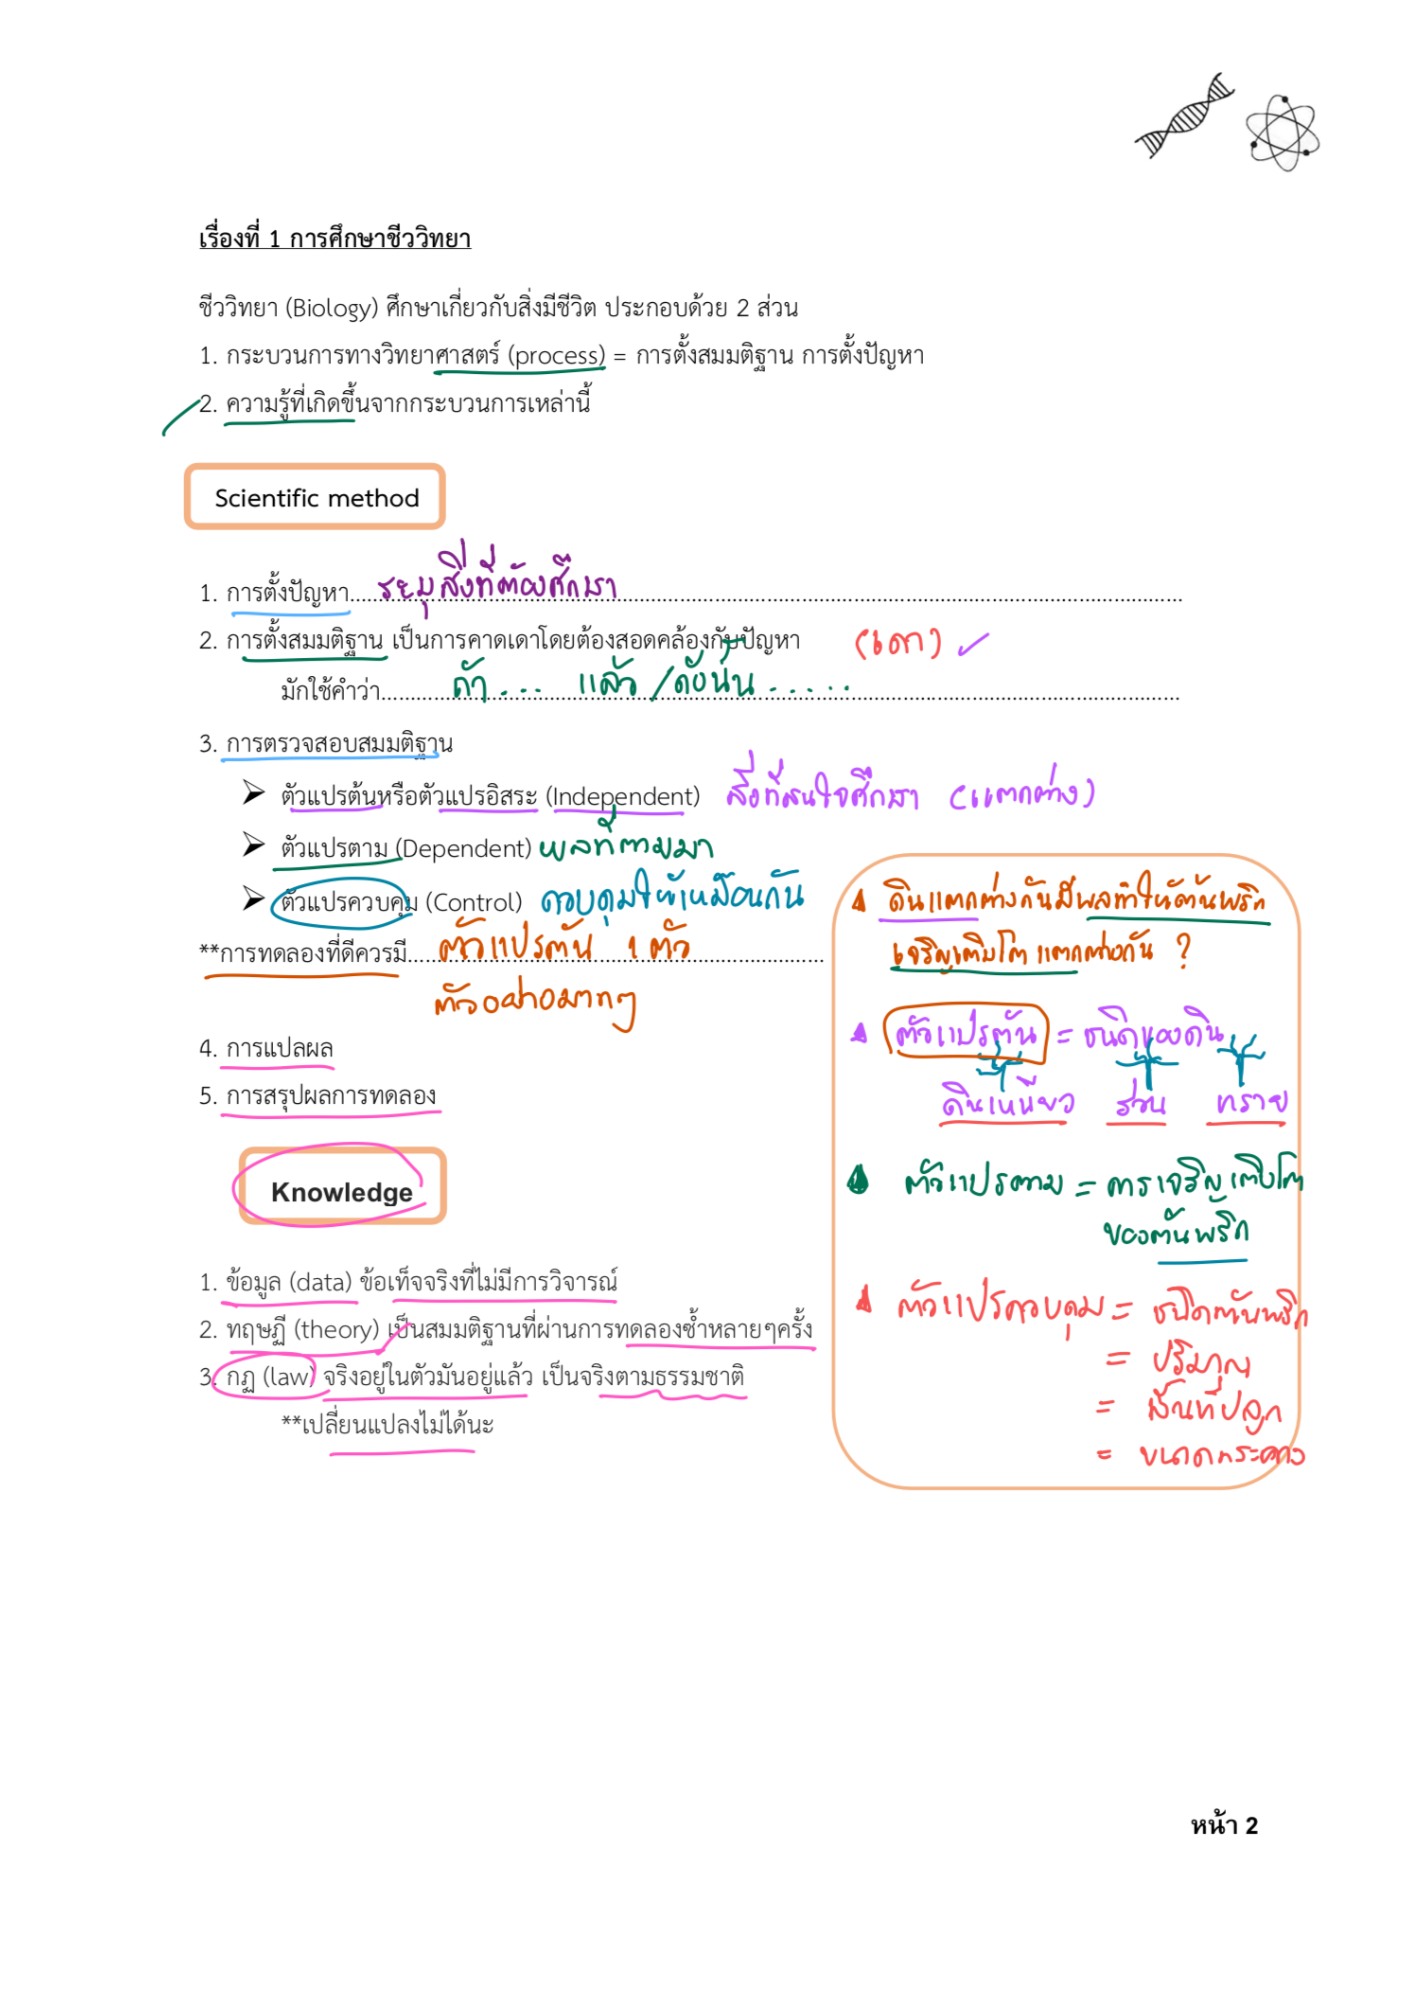 เรื่องที่ 1 การศึกษาชีววิทยา
ชีววิทยา (Biology) ศึกษาเกี่ยวกับสิ่งมีชีวิต ประกอบด้วย 2 ส่วน
1. กระบวนการทางวิทยาศาสตร์ (process) = การตั้งสมมติฐาน การตั้งปัญหา
2. ความรู้ที่เกิดขึ้นจากกระบวนการเหล่านี้
Scientific method
1. การตั้งปัญหา ระบุสิ่งที่ต้องศึกษา
2. การตั้งสมมติฐาน เป็นการคาดเดาโดยต้องสอดคล้องกับปัญหา (เดา)
มักใช้คำว่า ถ้า ... แล้ว / ดังนั้น ......
3. การตรวจสอบสมมติฐาน
➢ ตัวแปรต้นหรือตัวแปรอิสระ (Independent) สิ่งที่สนใจศึกษา (แตกต่าง)
➢ ตัวแปรตาม (Dependent) ผลที่ตามมา
➢ ตัวแปรควบคุม (Control) ควบคุมให้เหมือนกัน
**การทดลองที่ดีควรมี ตัวแปรต้น 1 ตัว
ตัวอย่างมากๆ
4. การแปลผล
5. การสรุปผลการทดลอง
ดินแตกต่างกันมีผลทำให้ต้นพริก
เจริญเติบโตแตกต่างกัน ?
ตัวแปรต้น = ชนิดของดิน
ดินเหนียว ร่วน ทราย
ตัวแปรตาม = การเจริญเติบโต
ของต้นพริก
ตัวแปรควบคุม = ชนิดต้นพริก
= ปริมาณ
= พื้นที่ปลูก
= ขนาดกระถาง
Knowledge
1. ข้อมูล (data) ข้อเท็จจริงที่ไม่มีการวิจารณ์
2. ทฤษฎี (theory) เป็นสมมติฐานที่ผ่านการทดลองซ้ำหลายๆครั้ง
3. กฏ (law) จริงอยู่ในตัวมันอยู่แล้ว เป็นจริงตามธรรมชาติ
**เปลี่ยนแปลงไม่ได้นะ
หน้า 2